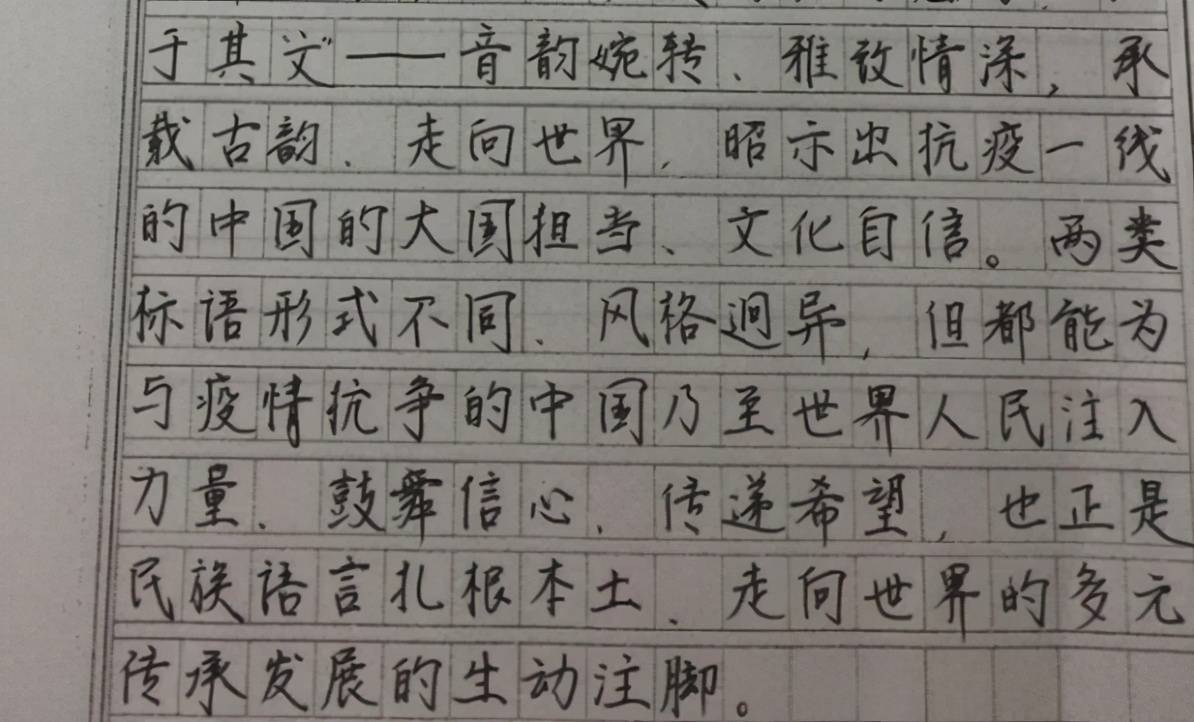 于其“文”——音韵婉转、雅致情深，承
载古韵、走向世界，昭示出抗疫一线
的中国的大国担当、文化自信。两类
标语形式不同、风格迥异，但都能为
与疫情抗争的中国乃至世界人民注入
力量、鼓舞信心、传递希望，也正是
民族语言扎根本土、走向世界的多元
传承发展的生动注脚。